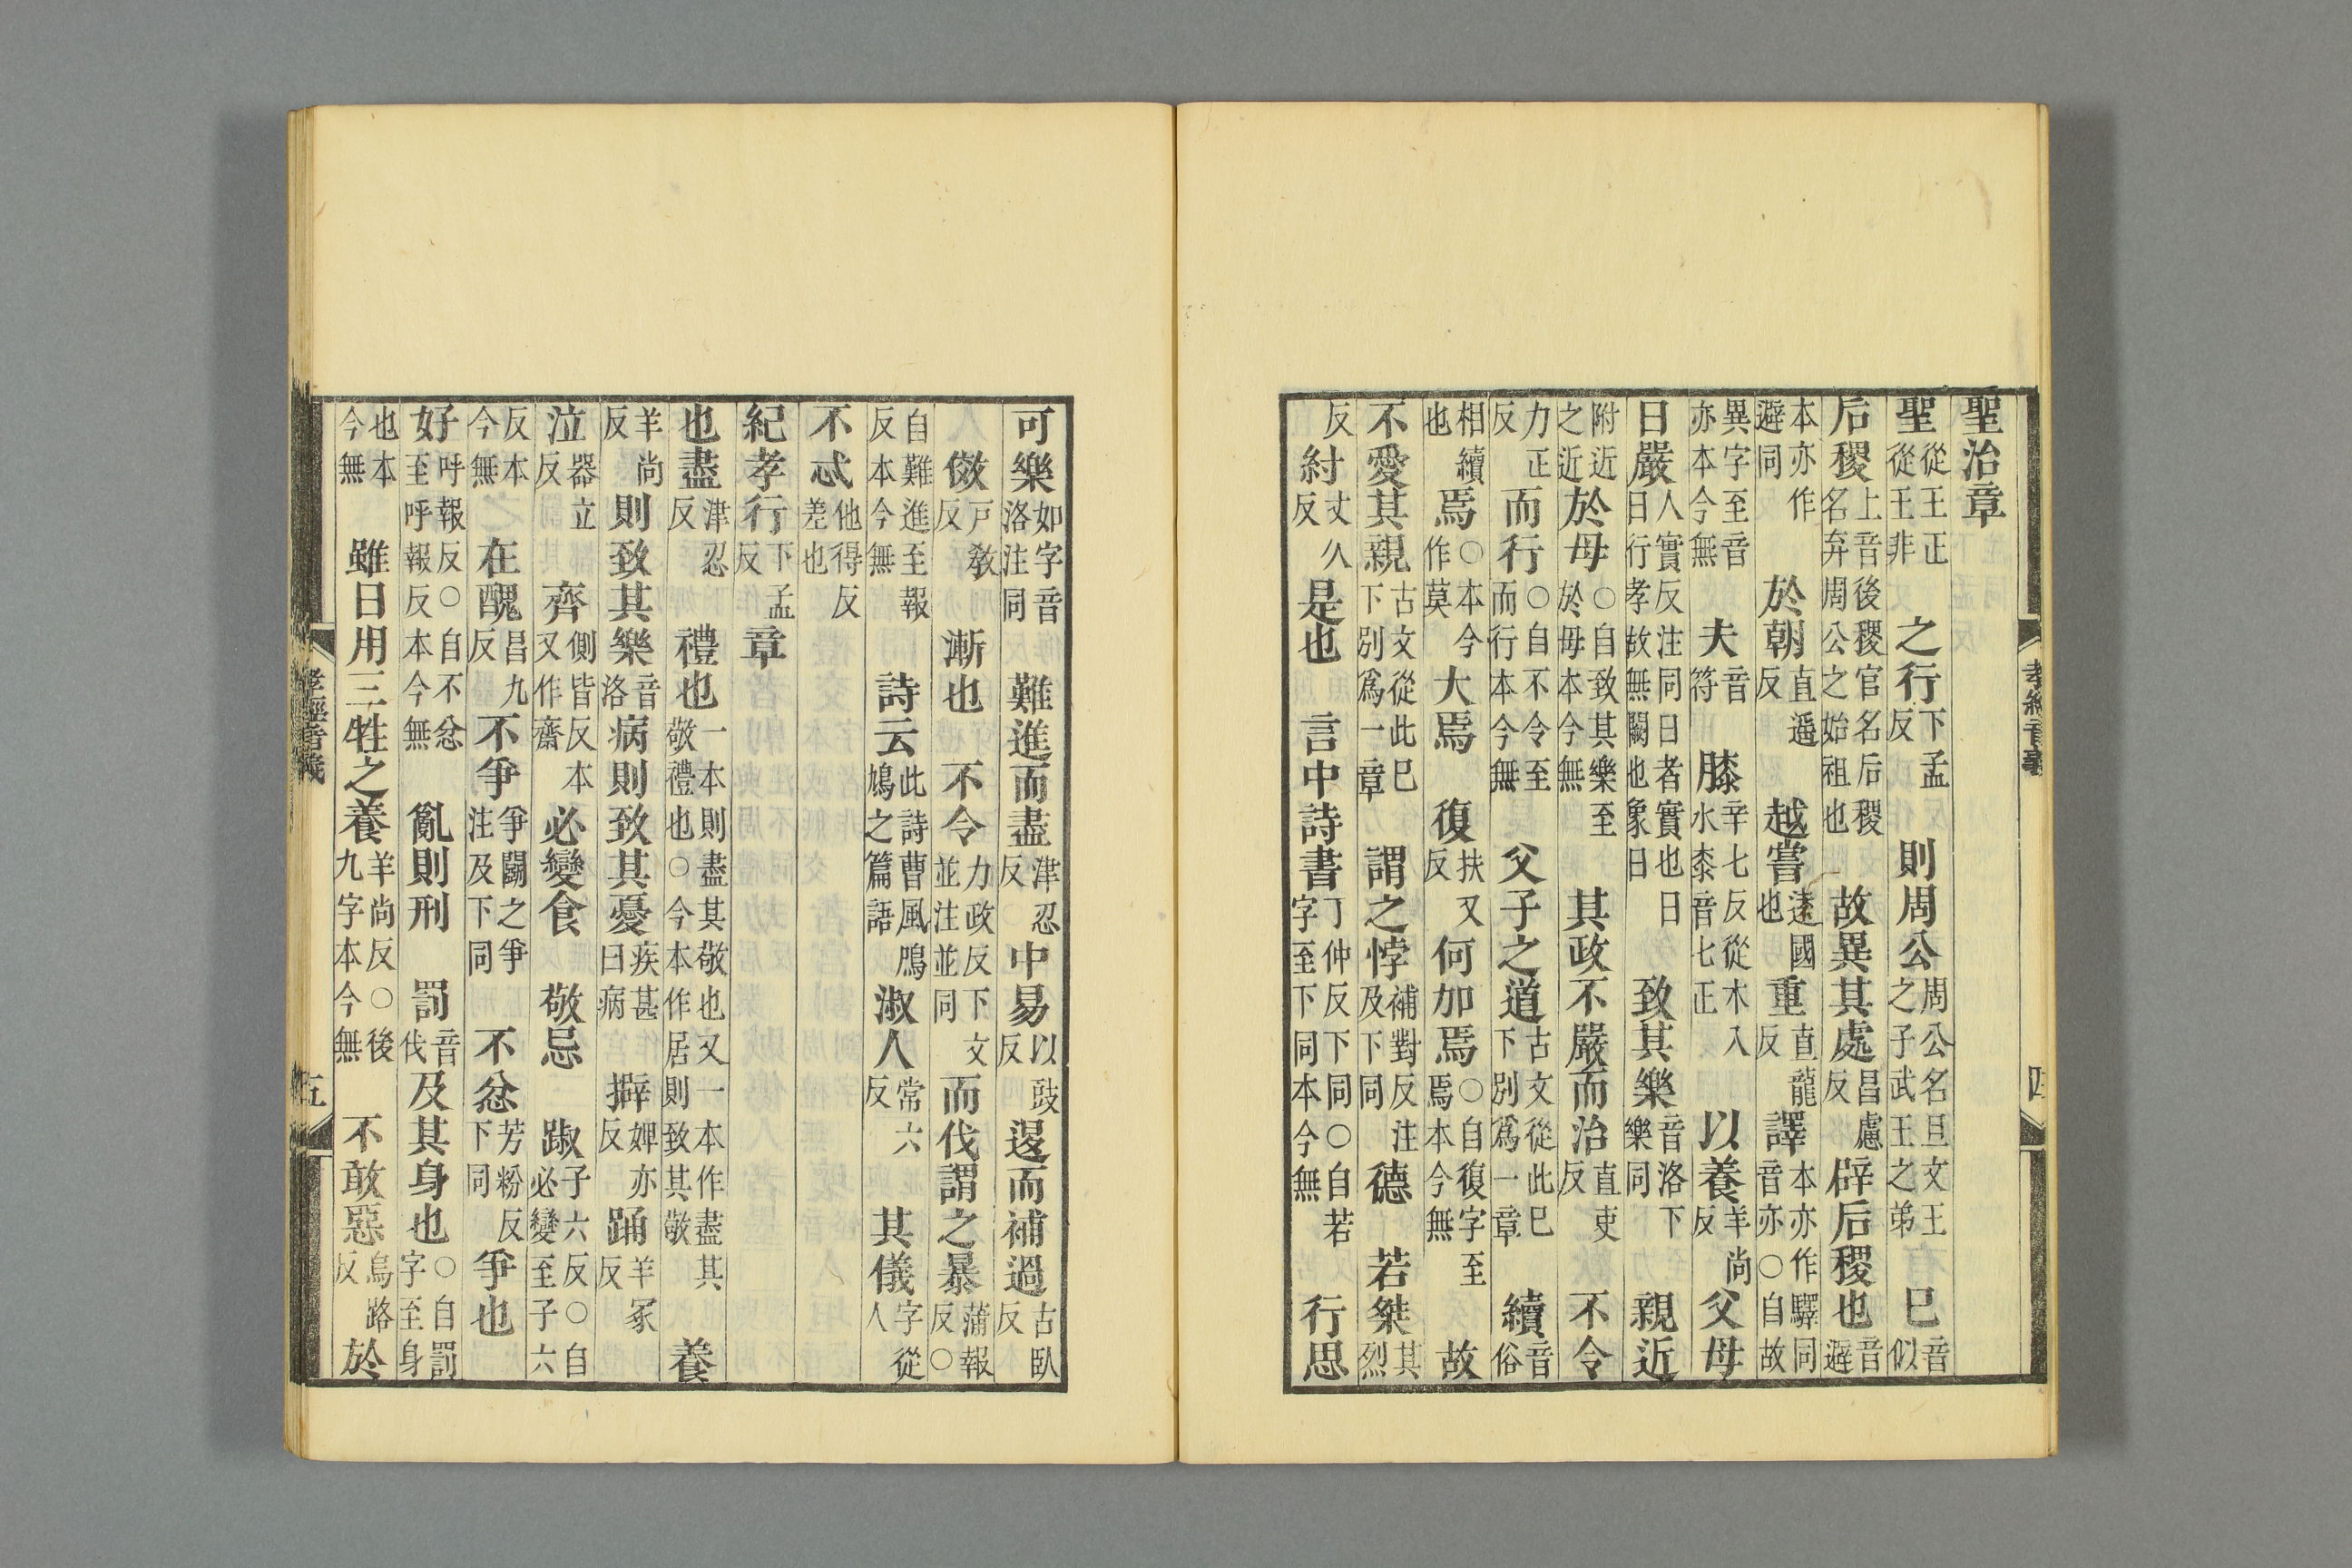 聖治章
聖從王正從王非之行下孟反則周公周公名旦文王之子武王之弟巳音似
后稷上音後稷官名后稷名弃周公之始祖也故異其處昌慮反辟后稷也音避
本亦作避同於朝直遥反越嘗逺國也重直龍反譯本亦作驛同音亦○自故
異字至音亦本今無夫音符膝辛七反從木入水桼音七正以養羊尚反父母
日嚴人實反注同日者實也日日行孝故無闕也象日致其樂音洛下樂同親近
附近之近於母○自致其樂至於母本今無其政不嚴而治直吏反不令
力正反而行○自不令至而行本今無父子之道古文從此巳下別爲一章續音俗
相續也焉○本今作莫大焉復扶又反何加焉○自復字至焉本今無故
不愛其親古文從此巳下別爲一章謂之悖補對反注及下同德若桀其烈
反紂丈久反是也言中詩書丁仲反下同○自若字至下同本今無行思
孝經音義
四
可樂如字音洛注同難進而盡津忍反中易以豉反逷而補過古臥反
傚戸教反漸也不令力政反下文並注並同而伐謂之暴蒲報反○
自難進至報反本今無詩云此詩曹風鳲鳩之篇語淑人常六反其儀字從人
不忒他得反差也
紀孝行下孟反章
也盡津忍反禮也一本則盡其敬也又一本作盡其敬禮也○今本作居則致其敬養
羊尚反則致其樂音洛病則致其憂疾甚曰病擗婢亦反踊羊冢反
泣器立反齊側皆反本又作齋必變食敬忌踧子六反○自必變至子六
反本今無在醜昌九反不爭爭鬭之爭注及下同不忿芳粉反下同爭也
好呼報反○自不忿至呼報反本今無亂則刑罰音伐及其身也○自罰字至身
也本今無雖日用三牲之養羊尚反○後九字本今無不敢惡烏路反於
孝經音義
五